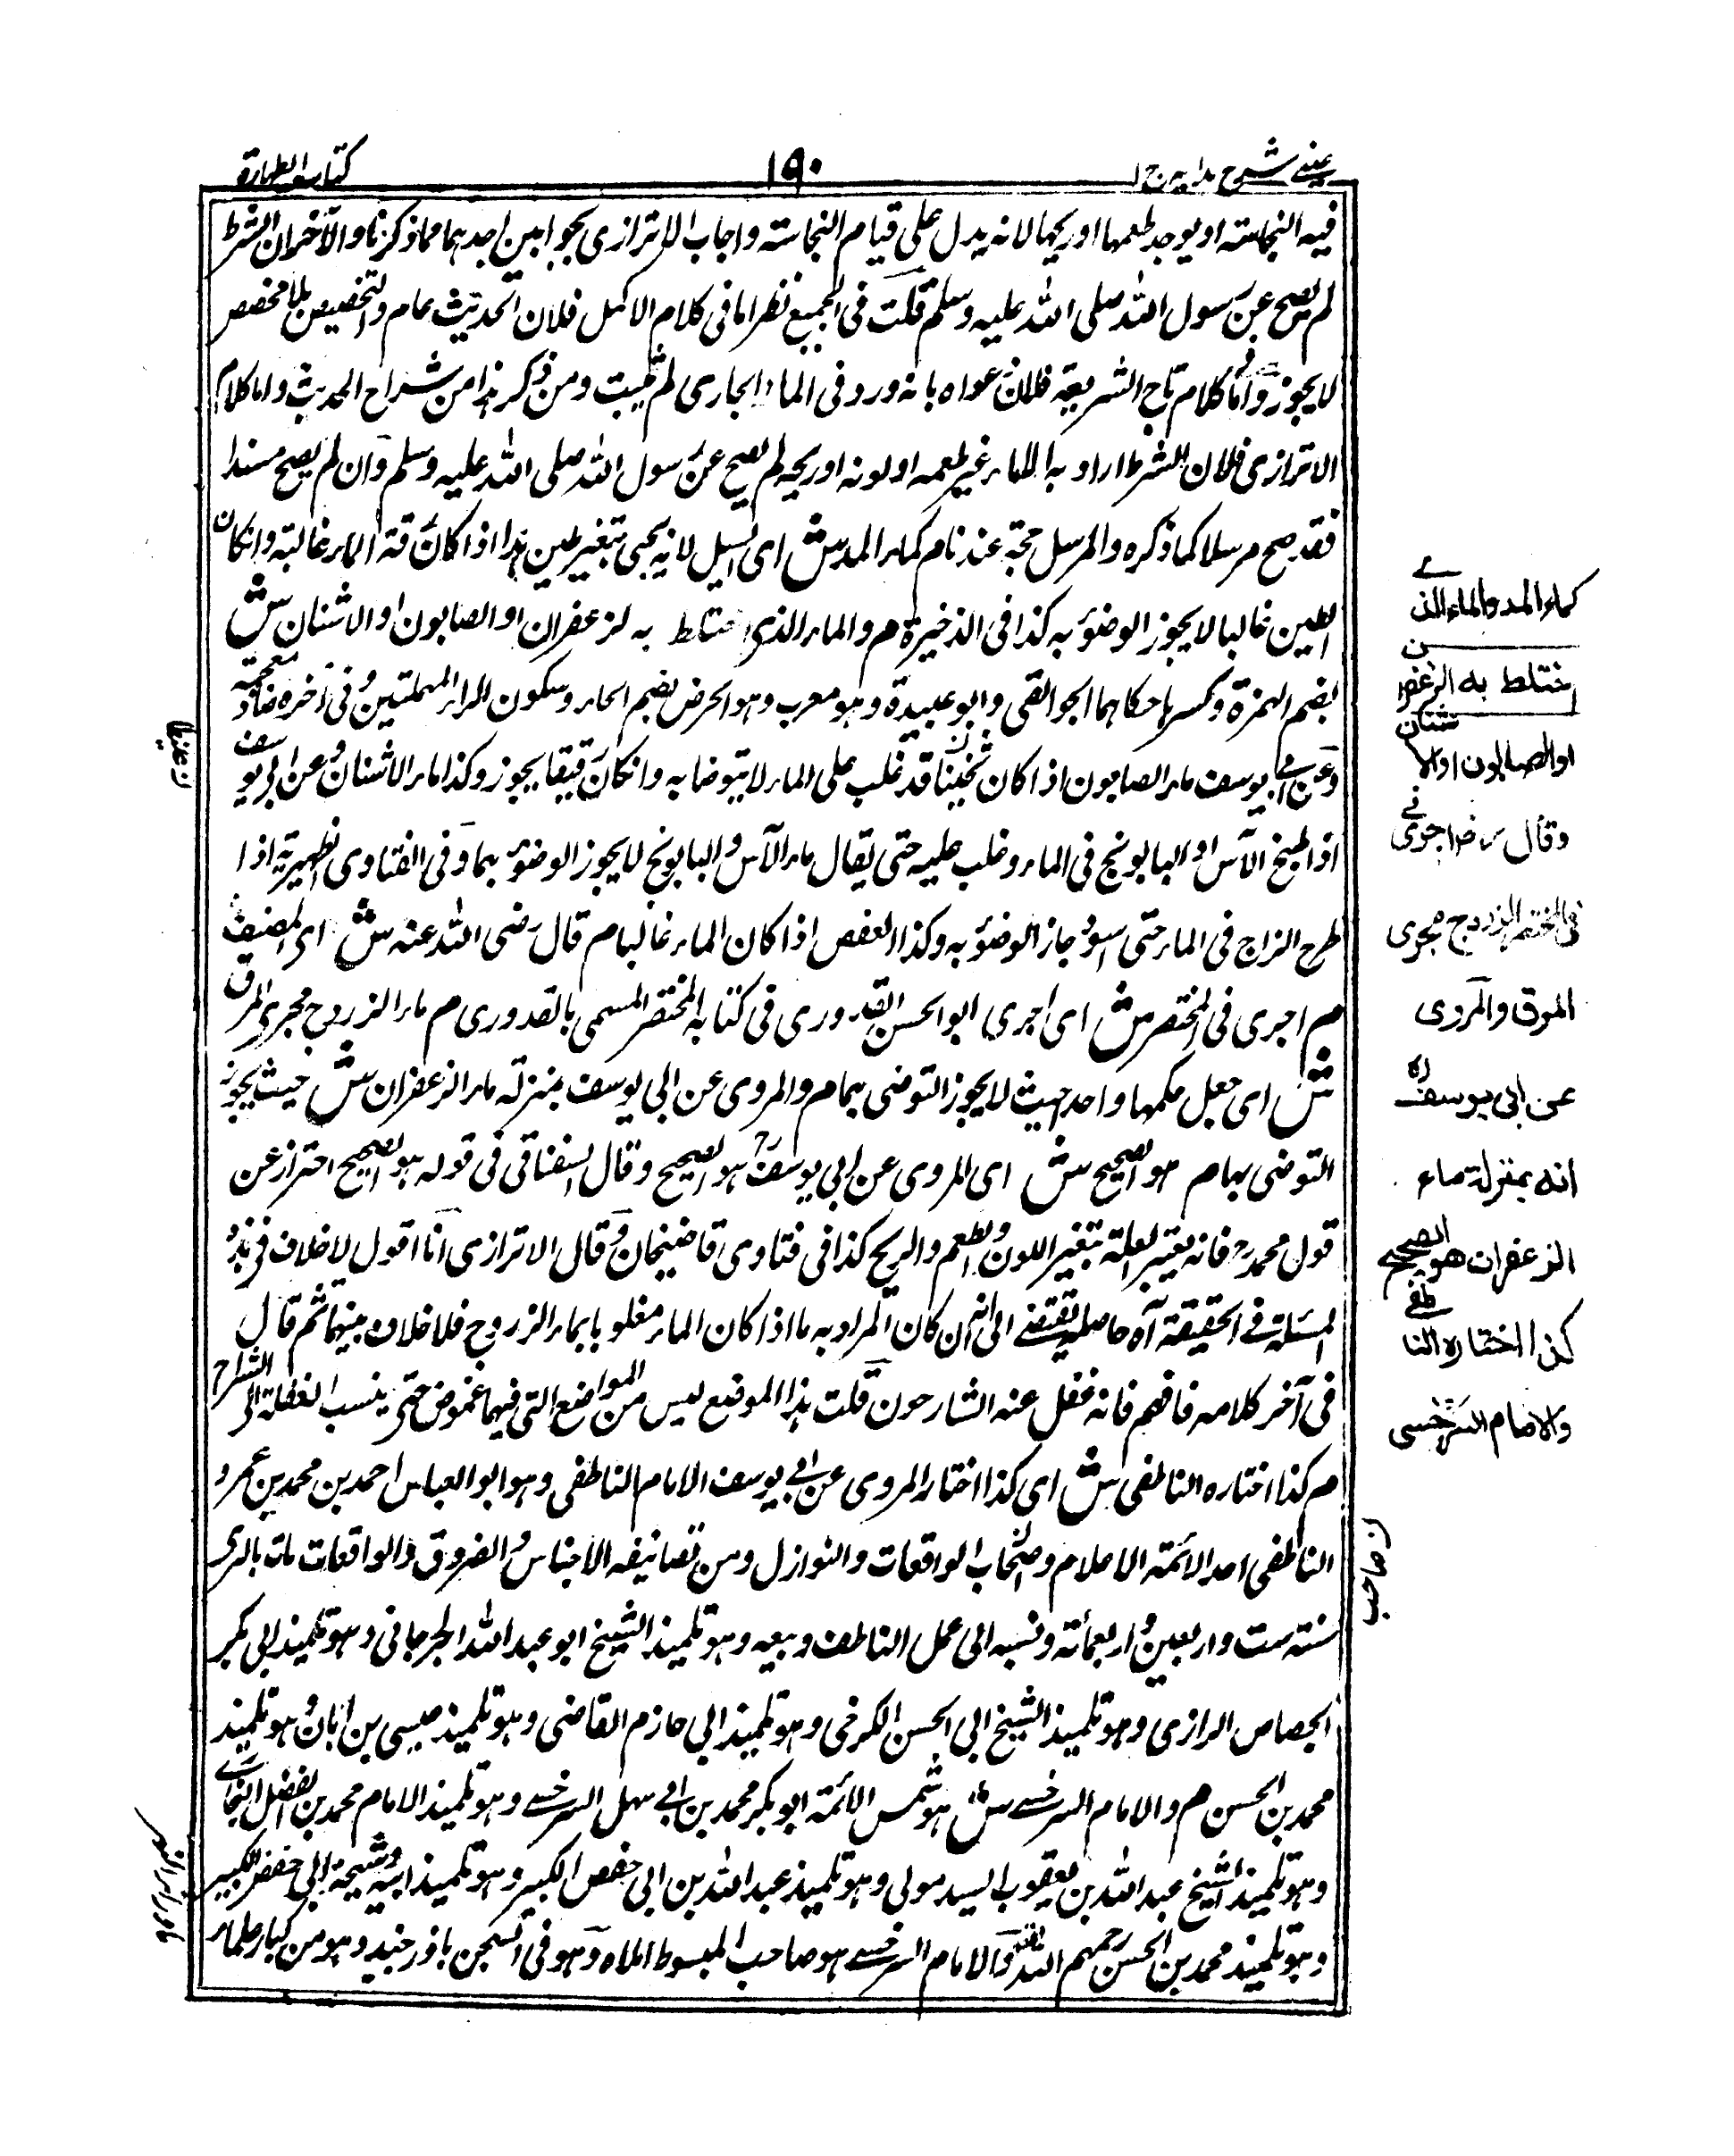 عینی شرح ہدایہ ج ١
١٩٠
کتاب الطہارة
فیه النجاسته او یوجد طعمها او ریحها لانه یدل علی قیام النجاسته واجاب الاترازی بجوابین احدهما ما ذکرنا والآخر ان الشرط
لم یصح عن رسول الله صلی الله علیه وسلم قلت فی الجمیع نظر اما فی کلام الاکمل فلان الحدیث عام والتخصیص بلا مخصص
لا یجوز واما کلام تاج الشریعة فلان دعواه بانه ورد فی الماء الجاری لم یثبت ومن ذکر هذا من شراح الحدیث واما کلام
الاترازی فلان الشرط اراد به الماء غیر طعمه او لونه او ریحه لم یصح عن رسول الله صلی الله علیه وسلم وان لم یصح مسندا
فقد صح مرسلا کما ذکره والمرسل حجة عندنا م کماء المد ش ای السیل لانه یجئ بتغیر طین هذا اذا کان رقة الماء غالبة وانکان
الطین غالبا لا یجوز الوضوء به کذا فی الذخیرة م والماء الذی اختلط به الزعفران او الصابون او الاشنان ش
بضم الهمزة وکسرها حکاهما الجوالقی وابو عبیدة وهو معرب وهو الحرض بضم الحاء وسکون الراء المهملتین وفی آخره ضاد معجمة
وعن ابی یوسف ماء الصابون اذا کان ثخینا قد غلب علی الماء لا یتوضا به وانکان رقیقا یجوز وکذا ماء الاشنان وعن ابی یوسف
اذا طبخ الآس او البابونج فی الماء وغلب علیه حتی یقال ماء الآس والبابونج لا یجوز الوضوء بهما وفی الفتاوی الظهیریة اذا
طرح الزاج فی الماء حتی اسود جاز الوضوء به وکذا العفص اذا کان الماء غالبا م قال رضی الله عنه ش ای المصنف
م اجری فی المختصر ش ای اجری ابو الحسن القدوری فی کتابه المختصر المسمی بالقدوری م ماء الزردج مجری المرق
ش ای جعل حکمها واحد حیث لا یجوز التوضی بهما م والمروی عن ابی یوسف بمنزلة ماء الزعفران ش حیث یجوز
التوضی بها م هو الصحیح ش ای المروی عن ابی یوسف رح هو الصحیح وقال السغناقی فی قوله هو الصحیح احتراز عن
قول محمد رح فانه یعتبر لعلة بتغیر اللون والطعم والریح کذا فی فتاوی قاضیخان وقال الاترازی انا اقول لا خلاف فی هذه
المسئلة فی الحقیقة آه حاصله یقتضی الی انه ان کان المراد به ما اذا کان الماء مغلوبا بماء الزردج فلا خلاف بینهما ثم قال
فی آخر کلامه فافهم فانه غفل عنه الشارحون قلت هذا الموضع لیس من المواضع التی فیها غموض حتی ینسب الغفلة الی الشراح
م کذا اختاره الناطفی ش ای کذا اختار المروی عن ابی یوسف الامام الناطفی وهو ابو العباس احمد بن محمد بن عمرو
الناطفی احد الائمة الاعلام واصحاب الواقعات والنوازل ومن تصانیفه الاجناس والفروق والواقعات مات بالری
سنته ست واربعین واربعمائة ونسبه الی عمل الناطف وبیعه وهو تلمیذ الشیخ ابو عبد الله الجرجانی وهو تلمیذ ابی بکر
الجصاص الرازی وهو تلمیذ الشیخ ابی الحسن الکرخی وهو تلمیذ ابی حازم القاضی وهو تلمیذ عیسی بن ابان وهو تلمیذ
محمد بن الحسن م والامام السرخسی ش هو شمس الائمة ابو بکر محمد بن ابی سهل السرخسی وهو تلمیذ الامام محمد بن الفضل البخاری
وهو تلمیذ الشیخ عبد الله بن یعقوب السیدمولی وهو تلمیذ عبد الله بن ابی حفص الکبیر وهو تلمیذ ابیه وشیخه ابی حفص الکبیر
وهو تلمیذ محمد بن الحسن رحمهم الله والامام السرخسی هو صاحب المبسوط املاه وهو فی السجن باوزجند وهو من کبار علماء
کماء المد والماء الذی
اختلط به الزعفران
او الصابون او الاشنان
وقال رض اجری فی
فی المختصر الزردج مجری
المرق والمروی
عن ابی یوسف رح
انه بمنزلة ماء
الزعفران هو الصحیح
کذا اختاره الناطفی
والامام السرخسی
ن صاحب
ماوراء النهر